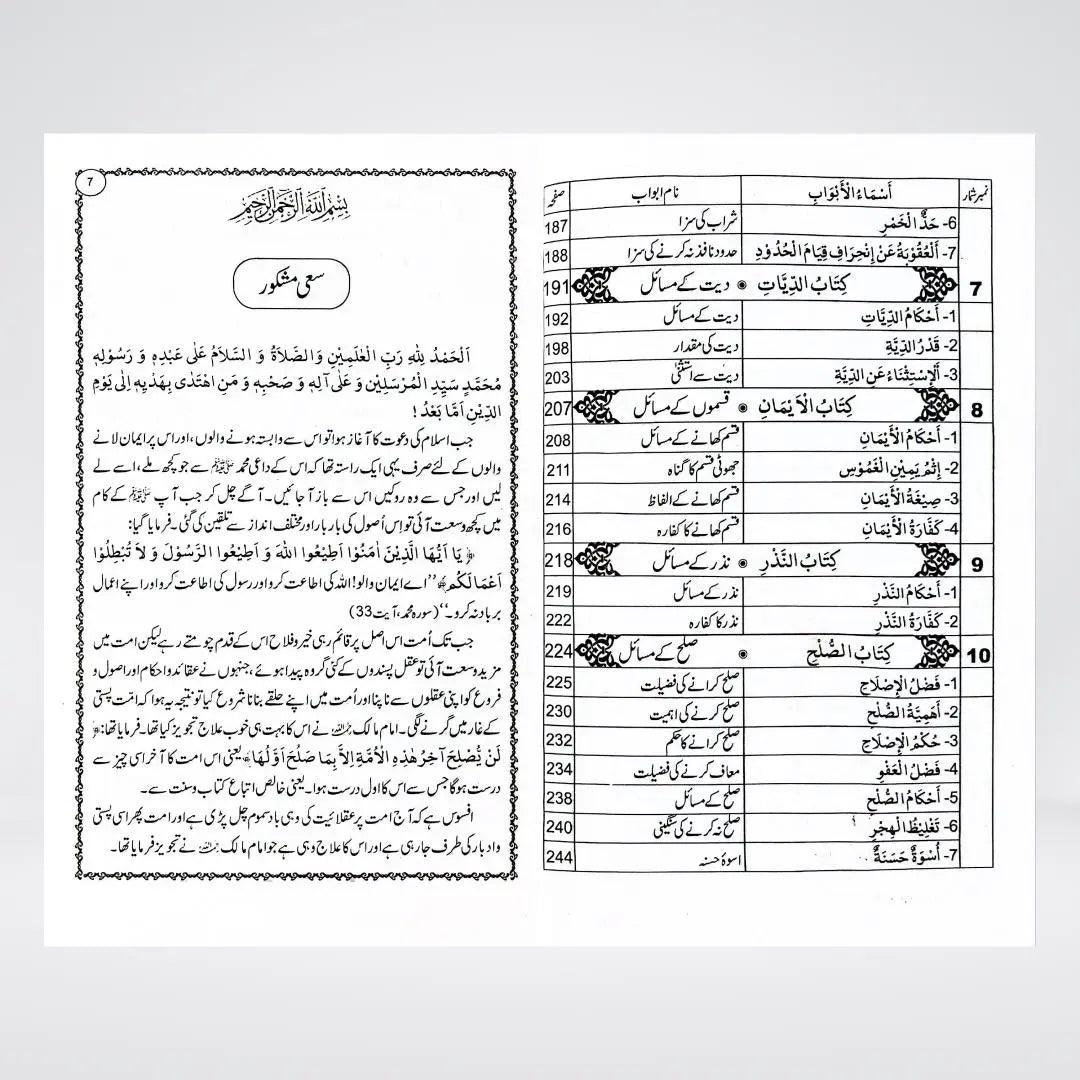 نمبر شمار | أَسْمَاءُ الْأَبْوَابِ | نام ابواب | صفحہ
6- حَدُّ الْخَمْرِ | شراب کی سزا | 187
7- اَلْعُقُوْبَةُ عَنْ اِنْحِرَافِ قِيَامِ الْحُدُوْدِ | حدود نافذ نہ کرنے کی سزا | 188
7 | كِتَابُ الدِّيَّاتِ ◉ دیت کے مسائل | 191
1- أَحْكَامُ الدِّيَّاتِ | دیت کے مسائل | 192
2- قَدْرُ الدِّيَّةِ | دیت کی مقدار | 198
3- اَلْإِسْتِثْنَاءُ عَنِ الدِّيَّةِ | دیت سے استثنیٰ | 203
8 | كِتَابُ الْاَيْمَانِ ◉ قسموں کے مسائل | 207
1- أَحْكَامُ الْأَيْمَانِ | قسم کھانے کے مسائل | 208
2- اِثْمُ يَمِيْنِ الْغَمُوْسِ | جھوٹی قسم کا گناہ | 211
3- صِيْغَةُ الْأَيْمَانِ | قسم کھانے کے الفاظ | 214
4- كَفَّارَةُ الْأَيْمَانِ | قسم کھانے کا کفارہ | 216
9 | كِتَابُ النَّذْرِ ◉ نذر کے مسائل | 218
1- أَحْكَامُ النَّذْرِ | نذر کے مسائل | 219
2- كَفَّارَةُ النَّذْرِ | نذر کا کفارہ | 222
10 | كِتَابُ الصُّلْحِ ◉ صلح کے مسائل | 224
1- فَضْلُ الْإِصْلَاحِ | صلح کرانے کی فضیلت | 225
2- أَهَمِيَّةُ الصُّلْحِ | صلح کرنے کی اہمیت | 230
3- حُكْمُ الْإِصْلَاحِ | صلح کرانے کا حکم | 232
4- فَضْلُ الْعَفْوِ | معاف کرنے کی فضیلت | 234
5- أَحْكَامُ الصُّلْحِ | صلح کے مسائل | 238
6- تَغْلِيْظُ الْهِجْرِ | صلح نہ کرنے کی سنگینی | 240
7- أُسْوَةٌ حَسَنَةٌ | اسوۂ حسنہ | 244
7
بِسْمِ اللهِ الرَّحْمٰنِ الرَّحِيْمِ
سعی مشکور
اَلْحَمْدُ لِلّٰهِ رَبِّ الْعٰلَمِيْنَ وَالصَّلَاةُ وَ السَّلَامُ عَلٰى عَبْدِهٖ وَ رَسُوْلِهٖ
مُحَمَّدٍ سَيِّدِ الْمُرْسَلِيْنَ وَ عَلٰى آلِهٖ وَ صَحْبِهٖ وَ مَنِ اهْتَدٰى بِهَدْيِهٖ اِلٰى يَوْمِ
الدِّيْنِ اَمَّا بَعْدُ !
جب اسلام کی دعوت کا آغاز ہوا تو اس سے وابستہ ہونے والوں، اور اس پر ایمان لانے
والوں کے لئے صرف یہی ایک راستہ تھا کہ اس کے داعی محمد ﷺ سے جو کچھ ملے، اسے لے
لیں اور جس سے وہ روکیں اس سے باز آ جائیں۔ آگے چل کر جب آپ ﷺ کے کام
میں کچھ وسعت آئی تو اس اُصول کی بار بار اور مختلف انداز سے تلقین کی گئی۔ فرمایا گیا:
﴿ يَا اَيُّهَا الَّذِيْنَ اٰمَنُوْا اَطِيْعُوا اللّٰهَ وَ اَطِيْعُوا الرَّسُوْلَ وَ لَا تُبْطِلُوْا
اَعْمَالَكُمْ ﴾ ’’اے ایمان والو! اللہ کی اطاعت کرو اور رسول کی اطاعت کرو اور اپنے اعمال
برباد نہ کرو۔‘‘ (سورہ محمد، آیت 33)
جب تک اُمت اس اصل پر قائم رہی خیر و فلاح اس کے قدم چومتے رہے لیکن امت میں
مزید وسعت آئی تو عقل پسندوں کے کئی گروہ پیدا ہوئے، جنہوں نے عقائد و احکام اور اصول و
فروع کو اپنی عقلوں سے ناپنا اور اُمت میں اپنے حلقے بنانا شروع کیا تو نتیجہ یہ ہوا کہ امت پستی
کے غار میں گرنے لگی۔ امام مالک رحمہ اللہ نے اس کا بہت ہی خوب علاج تجویز کیا تھا۔ فرمایا تھا: ﴿
لَنْ يُّصْلِحَ آخِرُ هٰذِهِ الْاُمَّةِ اِلَّا بِمَا صَلُحَ اَوَّلُهَا ﴾ یعنی اس امت کا آخر اسی چیز سے
درست ہو گا جس سے اس کا اول درست ہوا۔ یعنی خالص اتباع کتاب و سنت سے۔
افسوس ہے کہ آج امت پر عقلائیت کی وہی بادسموم چل پڑی ہے اور امت پھر اسی پستی
و ادبار کی طرف جا رہی ہے اور اس کا علاج وہی ہے جو امام مالک رحمہ اللہ نے تجویز فرمایا تھا۔